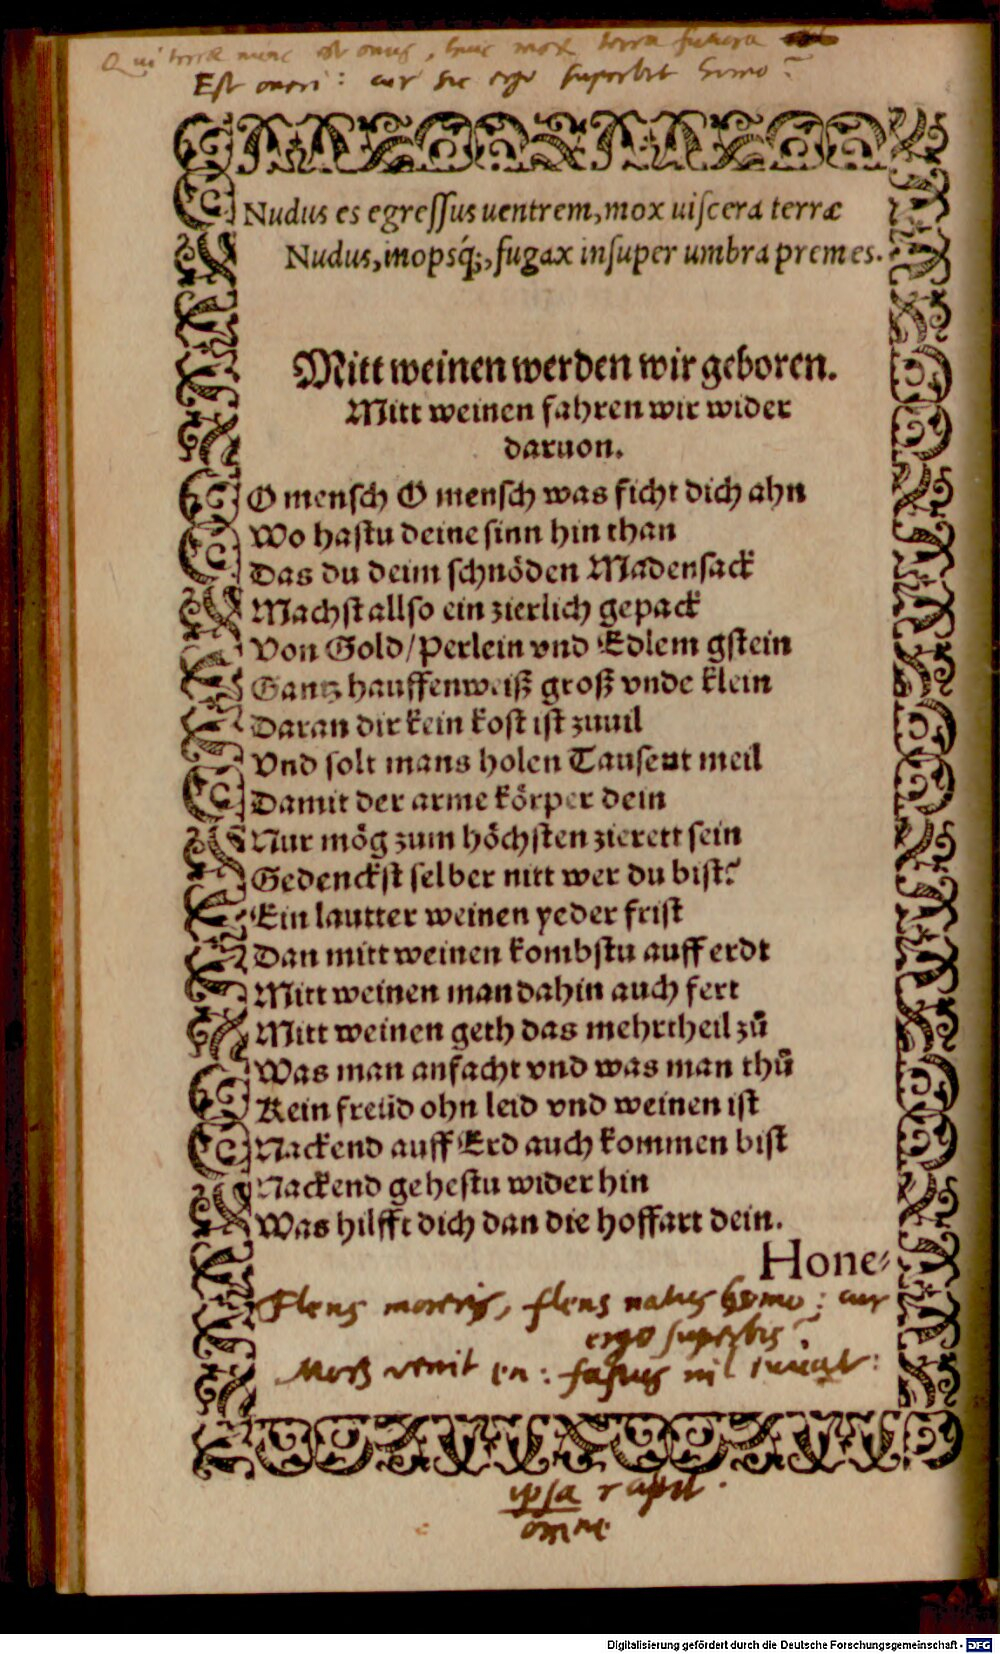 Qui terræ nunc est onus, huic mox terra futura
Est oneri: cur sic ergo superbit homo?
Nudus es egreſſus uentrem, mox uiſcera terræ
Nudus, inopsq́;, fugax inſuper umbra premes.
Mitt weinen werden wir geboren.
Mitt weinen fahren wir wider
daruon.
O mensch O mensch was ficht dich ahn
Wo hastu deine sinn hin than
Das du deim schnöden Madensack
Machst allso ein zierlich gepack
Von Gold/ Perlein vnd Edlem gstein
Gantz hauffenweiß groß vnde klein
Daran dir kein kost ist zuuil
Vnd solt mans holen Tausent meil
Damit der arme körper dein
Nur mög zum höchsten zierett sein
Gedenckst selber nitt wer du bist?
Ein lautter weinen yeder frist
Dan mitt weinen kombstu auff erdt
Mitt weinen man dahin auch fert
Mitt weinen geth das mehrtheil zů
Was man anfacht vnd was man thů
Kein freüd ohn leid vnd weinen ist
Nackend auff Erd auch kommen bist
Nackend gehestu wider hin
Was hilfft dich dan die hoffart dein.
Hone⸗
Flens moreris, flens natus homo: cur
ergo superbis?
Mors venit en: fastus nil iuuat:
ipsa rapit
omne.
Digitalisierung gefördert durch die Deutsche Forschungsgemeinschaft - DFG